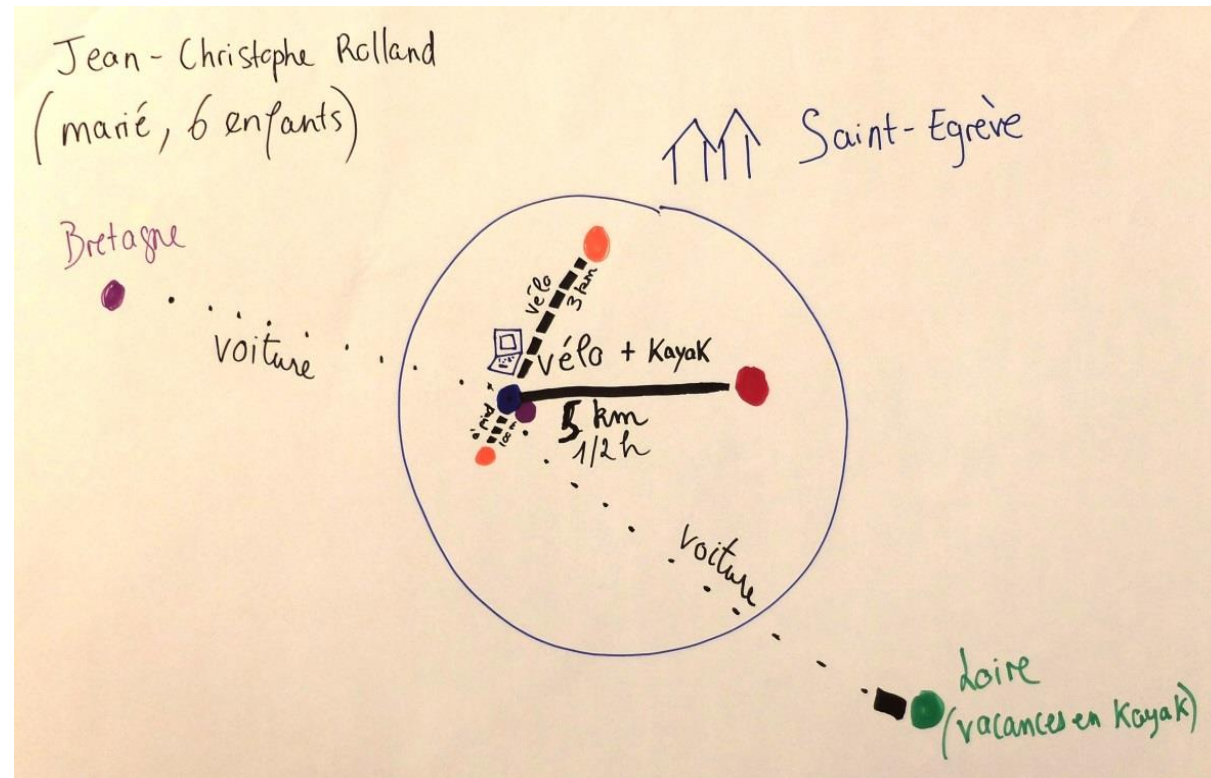 Jean-Christophe Rolland
(marié, 6 enfants)
Saint-Egrève
Bretagne
voiture
vélo
3 km
vélo + Kayak
5 km
1/2 h
à pied
100 m
voiture
Loire
(vacances en Kayak)